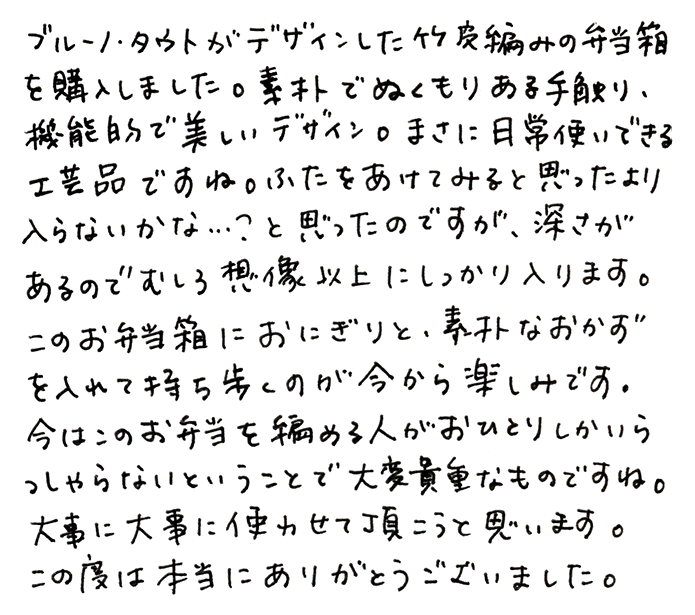 ブルーノ・タウトがデザインした竹皮編みの弁当箱
を購入しました。素朴でぬくもりある手触り、
機能的で美しいデザイン。まさに日常使いできる
工芸品ですね。ふたをあけてみると思ったより
入らないかな…?と思ったのですが、深さが
あるのでむしろ想像以上にしっかり入ります。
このお弁当箱におにぎりと、素朴なおかず
を入れて持ち歩くのが今から楽しみです。
今はこのお弁当を編める人がおひとりしかいら
っしゃらないということで大変貴重なものですね。
大事に大事に使わせて頂こうと思います。
この度は本当にありがとうございました。